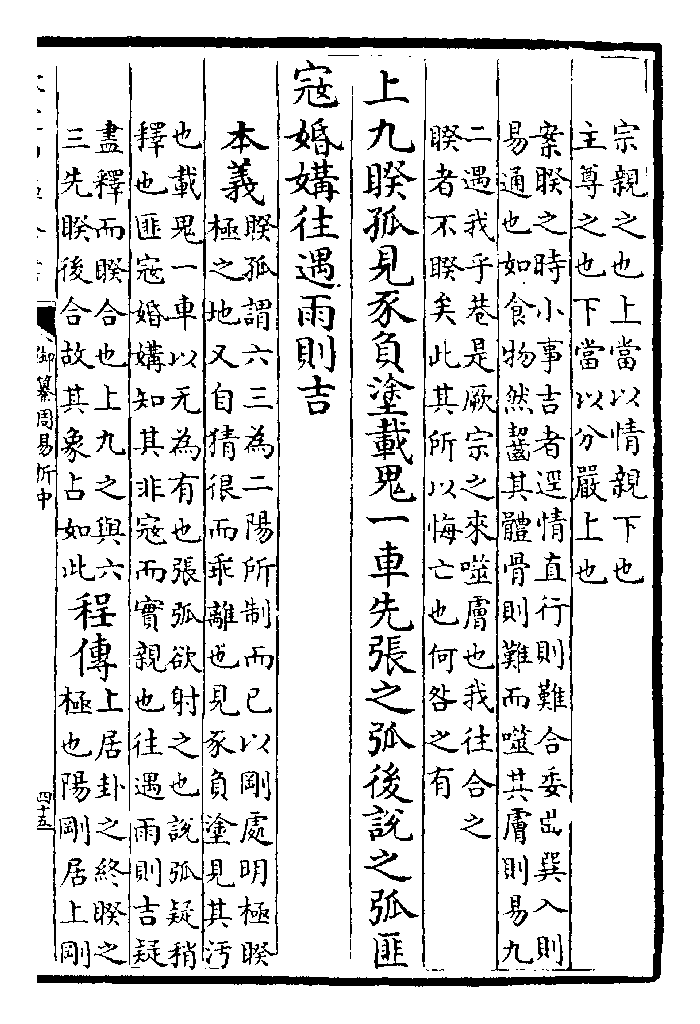 宗親之也上當以情親下也
主尊之也下當以分嚴上也
案睽之時小事吉者逕情直行則難合委曲巽入則
易通也如食物然齧其體骨則難而噬其膚則易九
二遇我乎巷是厥宗之來噬膚也我往合之
睽者不睽矣此其所以悔亡也何咎之有
上九睽孤見豕負塗載鬼一車先張之弧後說之弧匪
寇婚媾往遇雨則吉
本義睽孤謂六三為二陽所制而已以剛處明極睽
極之地又自猜很而乖離也見豕負塗見其汚
也載鬼一車以无為有也張弧欲射之也說弧疑稍
釋也匪寇婚媾知其非寇而實親也往遇雨則吉疑
盡釋而睽合也上九之與六
三先睽後合故其象占如此
程傳上居卦之終睽之
極也陽剛居上剛
御纂周易折中
四十五